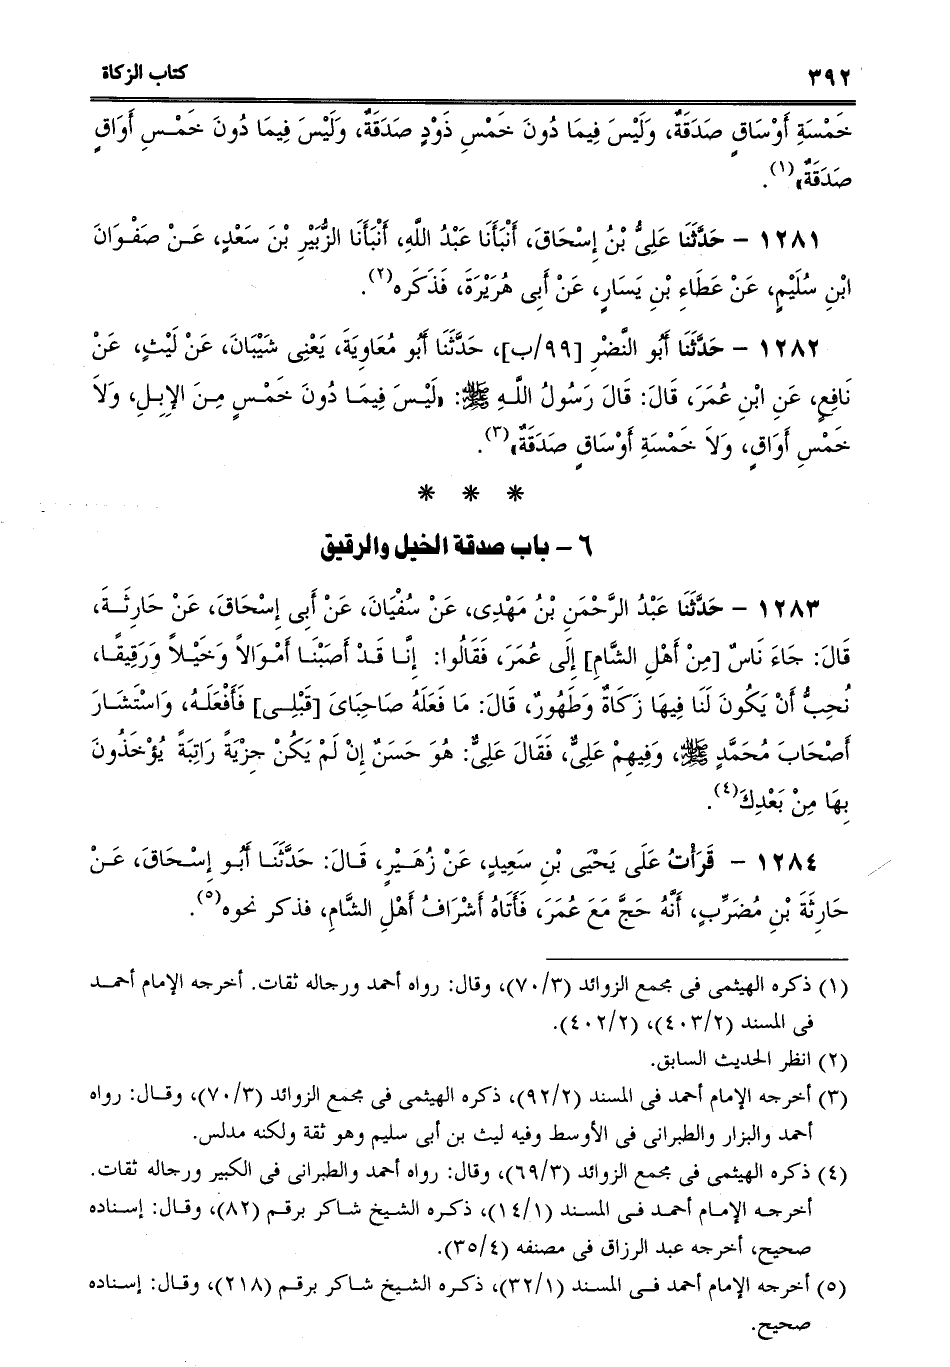 ٣٩٢ كتاب الزكاة
خَمْسَةِ أَوْسَاقٍ صَدَقَةٌ، وَلَيْسَ فِيمَا دُونَ خَمْسِ ذَوْدٍ صَدَقَةٌ، وَلَيْسَ فِيمَا دُونَ خَمْسِ أَوَاقٍ
صَدَقَةٌ»(١).
١٢٨١ – حَدَّثَنَا عَلِىُّ بْنُ إِسْحَاقَ، أَنْبَأَنَا عَبْدُ اللَّهِ، أَنْبَأَنَا الزُّبَيْرِ بْنَ سَعْدٍ، عَنْ صَفْوَانَ
ابْنِ سُلَيْمٍ، عَنْ عَطَاءِ بْنِ يَسَارٍ، عَنْ أَبِى هُرَيْرَةَ، فَذَكَره(٢).
١٢٨٢ – حَدَّثَنَا أَبُو النَّضْرِ [٩٩/ب]، حَدَّثَنَا أَبُو مُعَاوِيَةَ، يَعْنِى شَيْبَانَ، عَنْ لَيْثٍ، عَنْ
نَافِعٍ، عَنِ ابْنِ عُمَرَ، قَالَ: قَالَ رَسُولُ اللَّهِ ﷺ: «لَيْسَ فِيمَا دُونَ خَمْسٍ مِنَ الإِبِلِ، وَلاَ
خَمْسِ أَوَاقٍ، وَلاَ خَمْسَةِ أَوْسَاقٍ صَدَقَةٌ»(٣).
* * *
٦ – باب صدقة الخيل والرقيق
١٢٨٣ – حَدَّثَنَا عَبْدُ الرَّحْمَنِ بْنُ مَهْدِى، عَنْ سُفْيَانَ، عَنْ أَبِى إِسْحَاقَ، عَنْ حَارِثَةَ،
قَالَ: جَاءَ نَاسٌ [مِنْ أَهْلِ الشَّامِ] إِلَى عُمَرَ، فَقَالُوا: إِنَّا قَدْ أَصَبْنَا أَمْوَالاً وَخَيْلاً وَرَقِيقًا،
نُحِبُّ أَنْ يَكُونَ لَنَا فِيهَا زَكَاةٌ وَطَهُورٌ، قَالَ: مَا فَعَلَهُ صَاحِبَاىَ [قَبْلِى] فَأَفْعَلَهُ، وَاسْتَشَارَ
أَصْحَابَ مُحَمَّدٍ ﷺ، وَفِيهِمْ عَلِىٌّ، فَقَالَ عَلِىٌّ: هُوَ حَسَنٌ إِنْ لَمْ يَكُنْ جِزْيَةً رَاتِبَةً يُؤْخَذُونَ
بِهَا مِنْ بَعْدِكَ(٤).
١٢٨٤ – قَرَأْتُ عَلَى يَحْيَى بْنِ سَعِيدٍ، عَنْ زُهَيْرٍ، قَالَ: حَدَّثَنَا أَبُو إِسْحَاقَ، عَنْ
حَارِثَةَ بْنِ مُضَرِّبٍ، أَنَّهُ حَجَّ مَعَ عُمَرَ، فَأَتَاهُ أَشْرَافُ أَهْلِ الشَّامِ، فذكر نحوه(٥).
(١) ذكره الهيثمى فى مجمع الزوائد (٧٠/٣)، وقال: رواه أحمد ورجاله ثقات. أخرجه الإمام أحمد
فى المسند (٤٠٣/٢)، (٤٠٢/٢).
(٢) انظر الحديث السابق.
(٣) أخرجه الإمام أحمد فى المسند (٩٢/٢)، ذكره الهيثمى فى مجمع الزوائد (٧٠/٣)، وقال: رواه
أحمد والبزار والطبرانى فى الأوسط وفيه ليث بن أبى سليم وهو ثقة ولكنه مدلس.
(٤) ذكره الهيثمى فى مجمع الزوائد (٦٩/٣)، وقال: رواه أحمد والطبرانى فى الكبير ورجاله ثقات.
أخرجه الإمام أحمد فى المسند (١٤/١)، ذكره الشيخ شاكر برقم (٨٢)، وقال: إسناده
صحيح، أخرجه عبد الرزاق فى مصنفه (٣٥/٤).
(٥) أخرجه الإمام أحمد فى المسند (٣٢/١)، ذكره الشيخ شاكر برقم (٢١٨)، وقال: إسناده
صحيح.